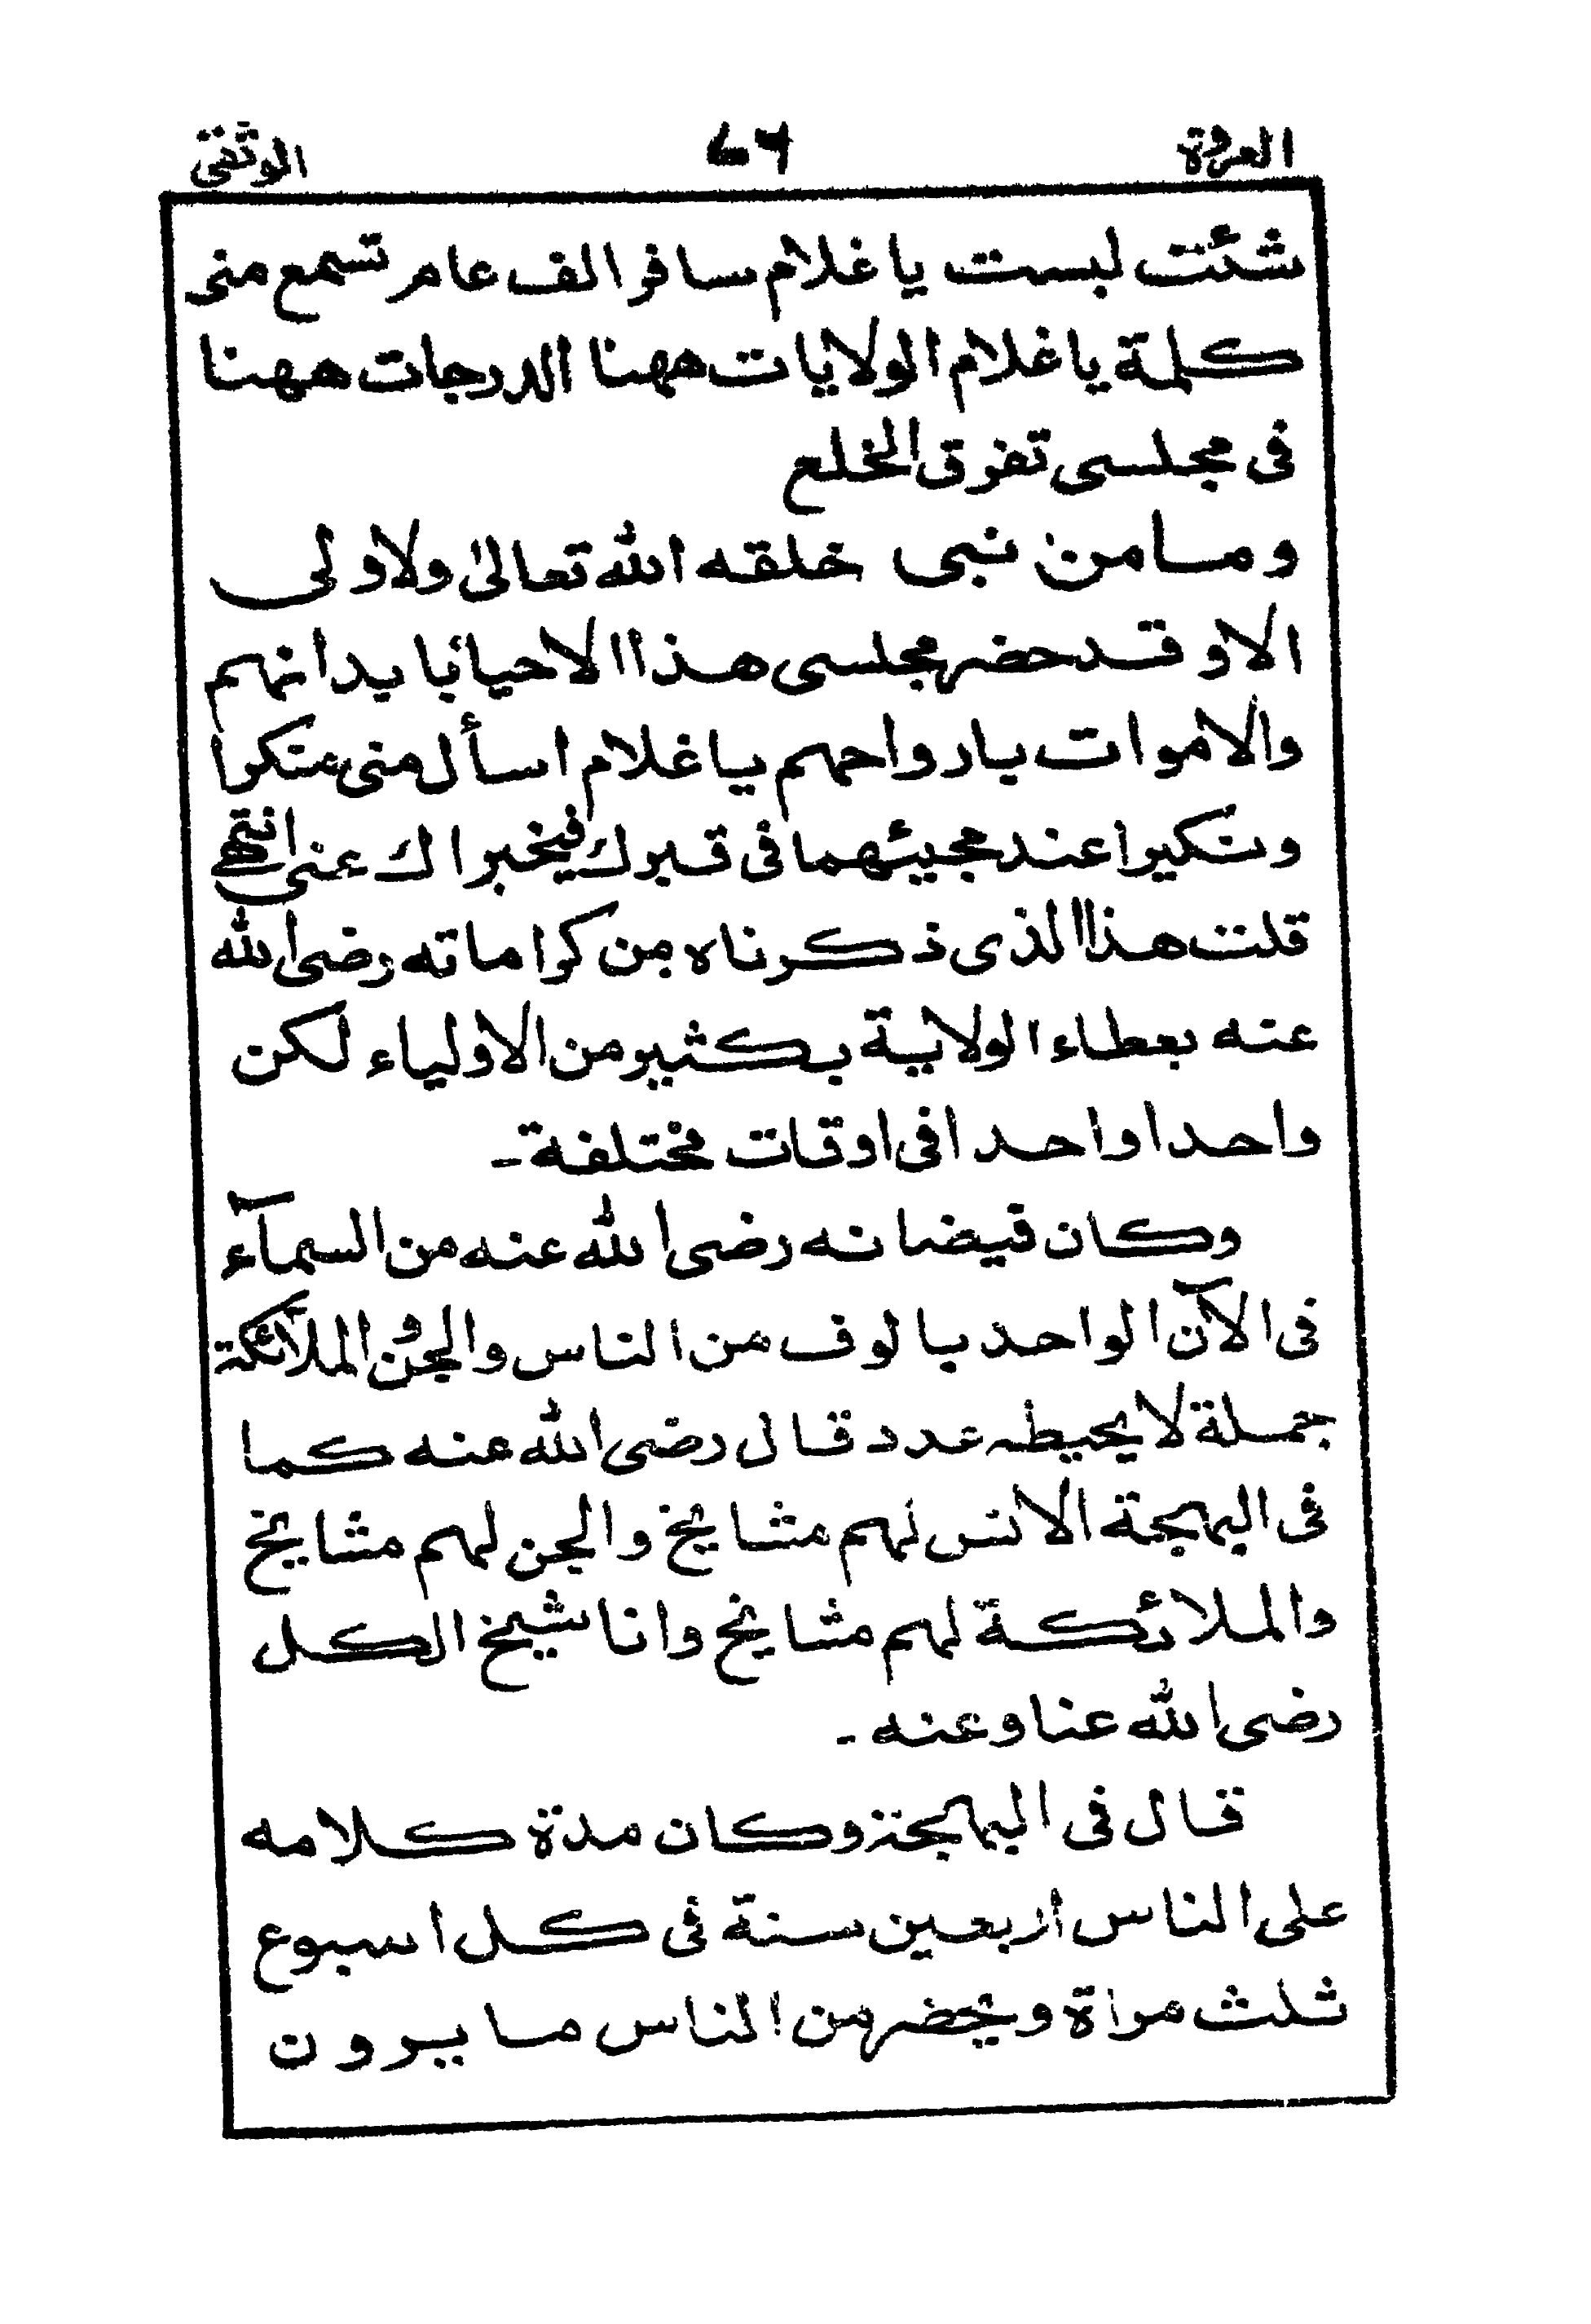 العروة ٤٦ الوثقى
شئت لبست يا غلام سافر الف عام تسمع منى
كلمة يا غلام الولايات ههنا الدرجات ههنا
فى مجلسى تفرق الخلع
وما من نبى خلقه الله تعالىٰ ولا ولى
الا و قد حضر مجلسى هذا الاحيا بابدانهم
والاموات بارواحهم يا غلام اسأل منى منكرا
ونكيرا عند مجيئهما فى قبرك فيخبراك عنى انتهى
قلت هذا الذى ذكرناه من كراماته رضى الله
عنه بعطاء الولاية بكثير من الاولياء لكن
واحدا واحدا فى اوقات مختلفة -
وكان فيضانه رضى الله عنه من السمآء
فى الآن الواحد بالوف من الناس والجن و الملآئكة
جملة لا يحيطه عدد قال رضى الله عنه كما
فى البهجة الانس لهم مشايخ والجن لهم مشايخ
والملائكة لهم مشايخ وانا شيخ الكل
رضى الله عنا وعنه -
قال فى البهجة وكان مدة كلامه
على الناس اربعين سنة فى كل اسبوع
ثلث مراة ويحضر من الناس ما يرون